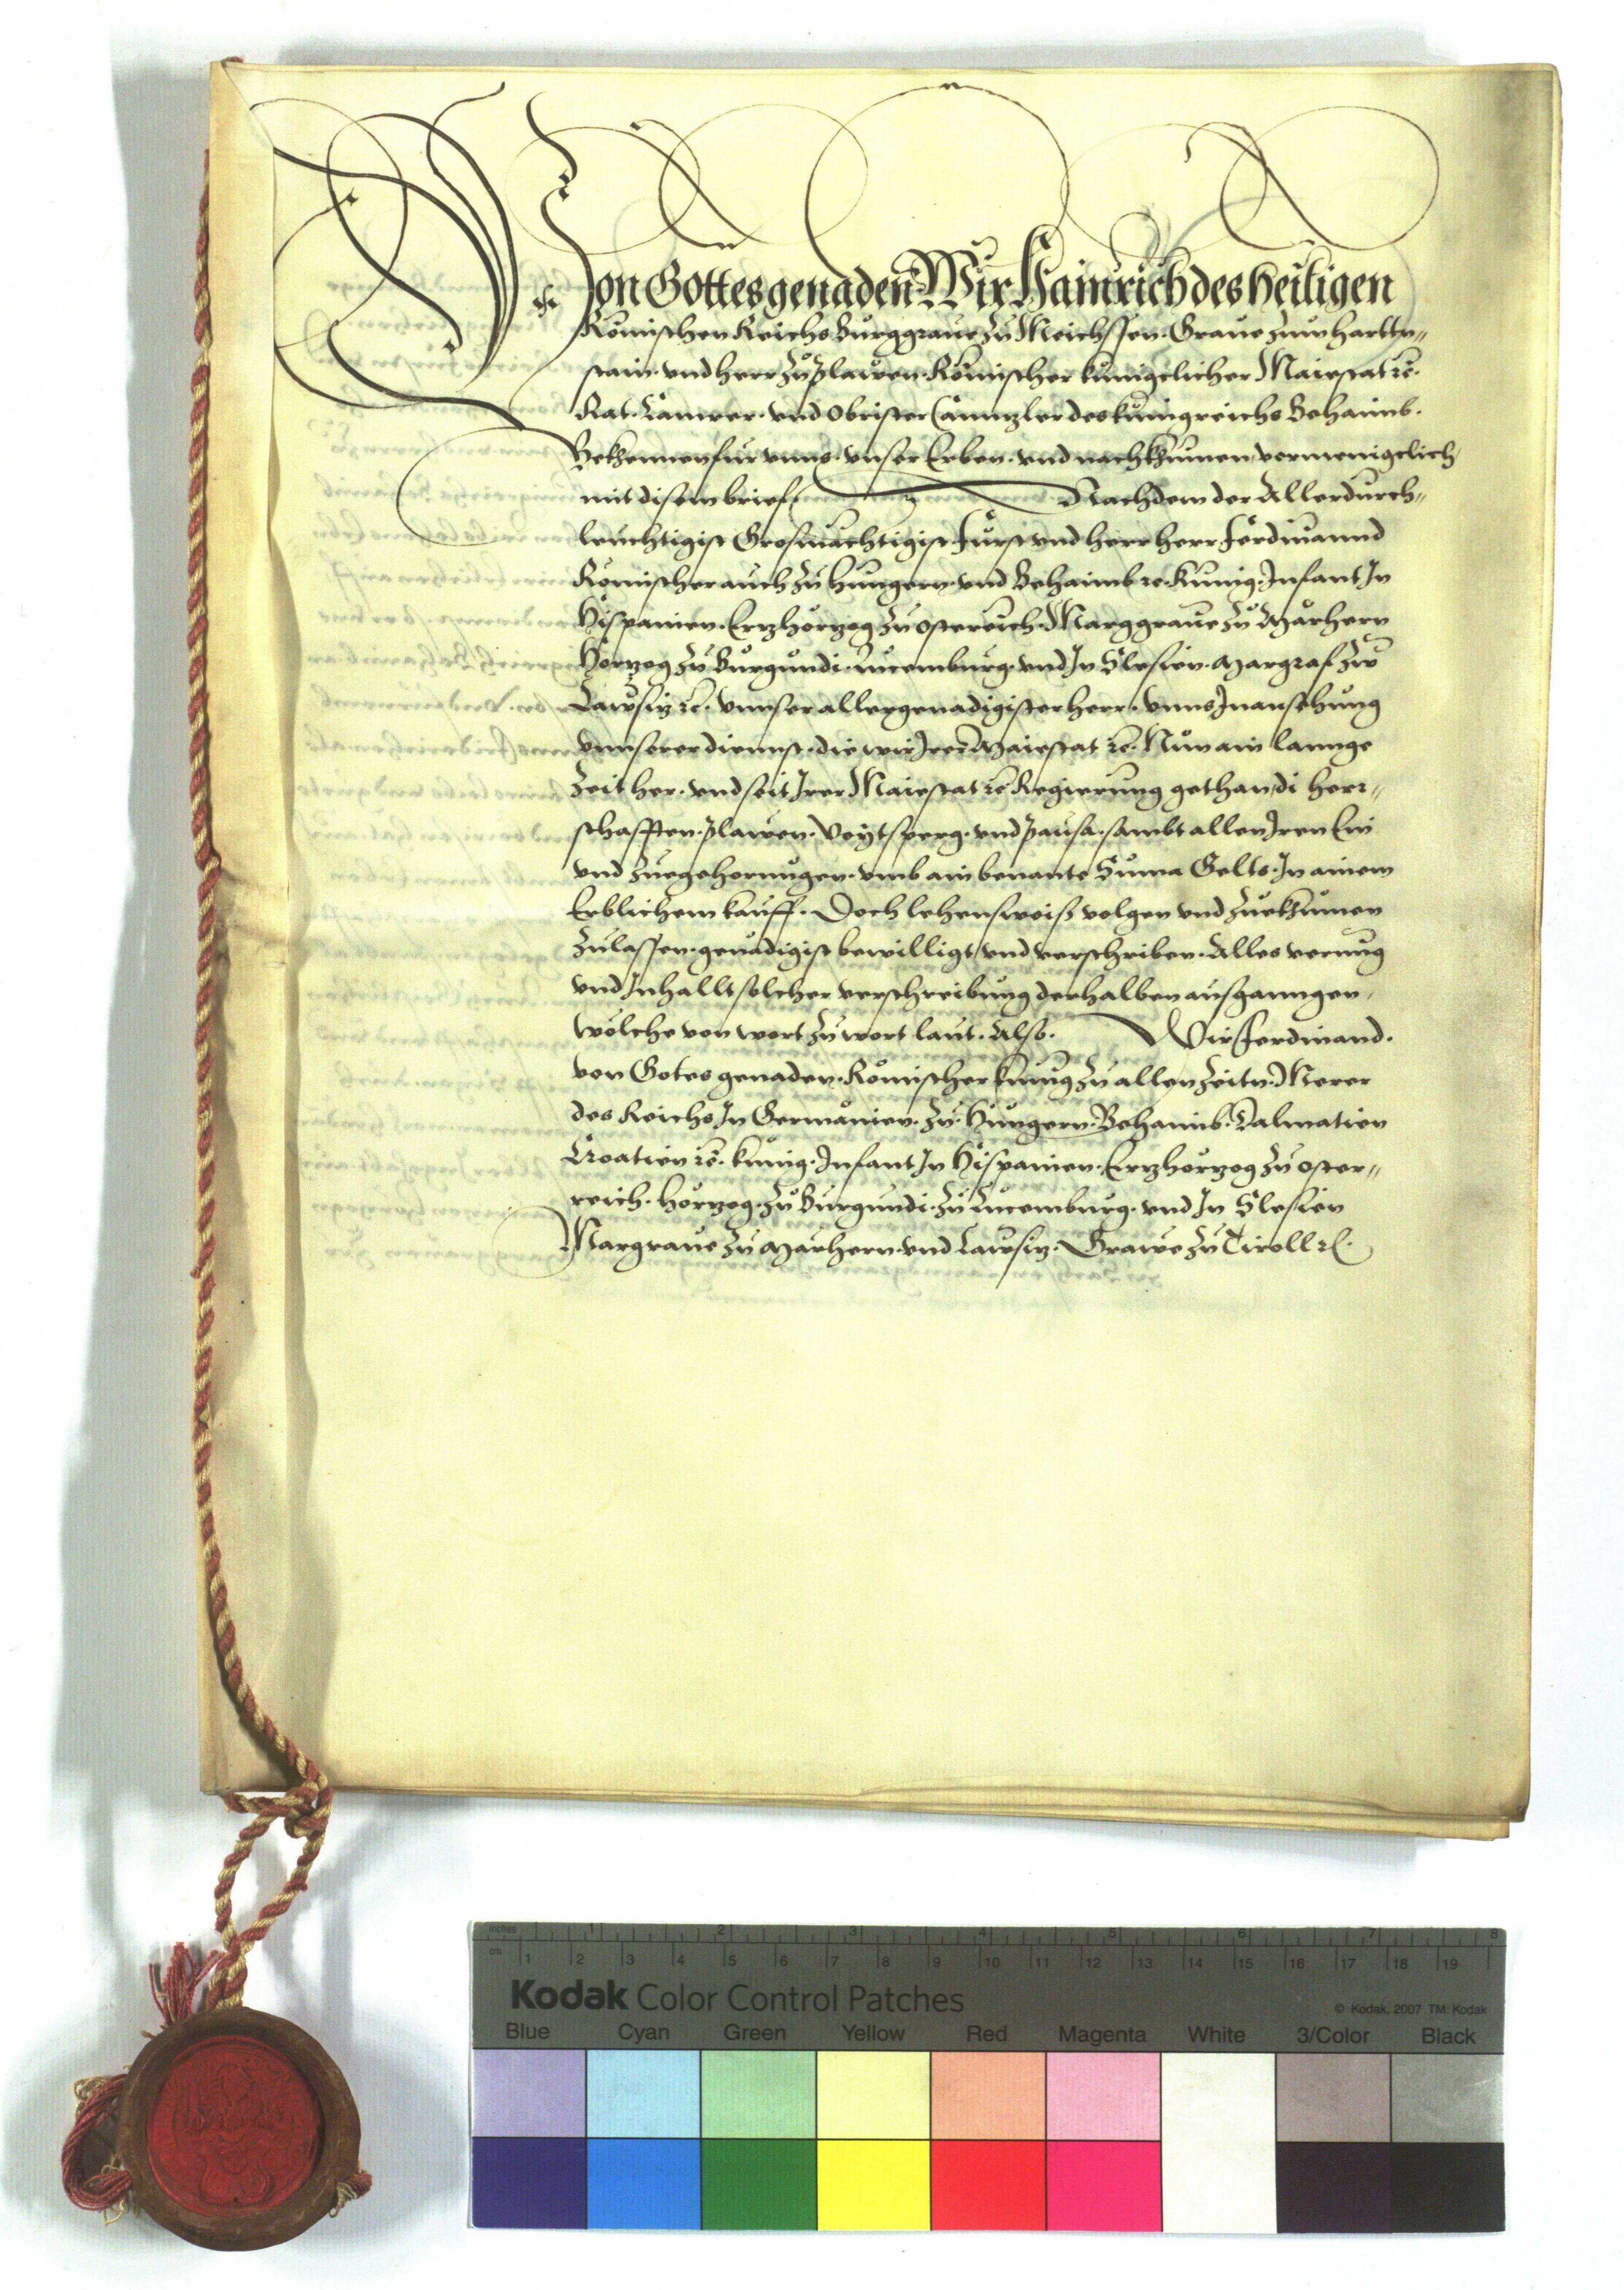 Von Gottes genaden Wir Hainrich des heiligen
Römischen Reichs Burggraue zu Meichssen. Graue zum hartten„
stain. vnd herr zu plawen. Römischer kunigclicher Maiestat rē.
Rat. Camrer. vnd Obrister Canntzler des kunigreichs Behaimb.
Bekhennen fur vnns. vnser Erben. vnd nachkhumen, vermenigclich
mit disem brief, Nachdem der Allerdurch„
leuchtigist Grosmächtigist Furst vnd herr herr Ferdinannd
Römischer auch zu hungern. vnd Behaimb rē. Kunig. Infant In
Hispanien. Ertzhertzog zu osterreich. Marggraue zu Märhern
Hertzog zu Burgundi. Lucemburg. vnd In Slesien. Margraf zu
Lausitz rē. vnnser allergenadigister herr. vnns In ansehung
vnnserer diennst. die wir Irer Maiestat rē. Nun ain lannge
Zeit her. vnd seit Irer Maiestat rē Regierung gethan, di herr„
schafften. plawen. Voytsperg. vnd pausa. sambt allen Iren Ein
vnd zuegehornngen. vmb ain benante Suma Gelts. In ainem
Erblichem kauff. Doch lehensweiß volgen vnd zuekhumen
zulassen. genädigist bewilligt, vnd verschriben. Alles vermug
vnd Inhallt solcher verschreibung derhalben ausganngen,
wölche von wort zu wort laut. Also. Wir Ferdinand.
von Gotes genaden. Römischer kunig zu allen Zeiten. Merer
des Reichs In Germanien. zu Hungern. Behaimb. Dalmatien
Croatien rē. kunig. Infant In Hispanien. Ertzhertzog zu oster„
reich. hertzog. zu Burgundi. zu Lucemburg. vnd In Slesien
Margraue zu Märhern. vnd Lausitz. Graue zu Tiroll rē.
inches 1 2 3 4 5 6 7 8
cm 1 2 3 4 5 6 7 8 9 10 11 12 13 14 15 16 17 18 19
Kodak Color Control Patches © Kodak, 2007 TM: Kodak
Blue Cyan Green Yellow Red Magenta White 3/Color Black